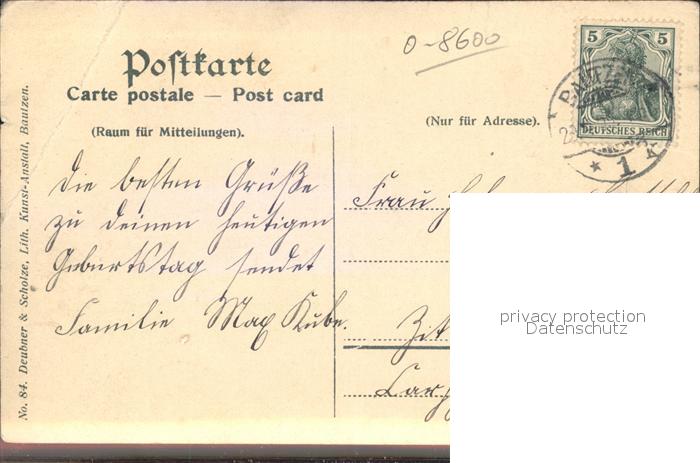 Postkarte
Carte postale — Post card
(Raum für Mitteilungen).
(Nur für Adresse).
0-8600
5 5
DEUTSCHES REICH
BAUTZEN
* 1 *
Die besten Grüße
zu deinen heutigen
Geburtstag sendet
Familie Max Kube.
Frau
Zit
No. 84. Deubner & Scholze, Lith. Kunst-Anstalt, Bautzen.
privacy protection
Datenschutz